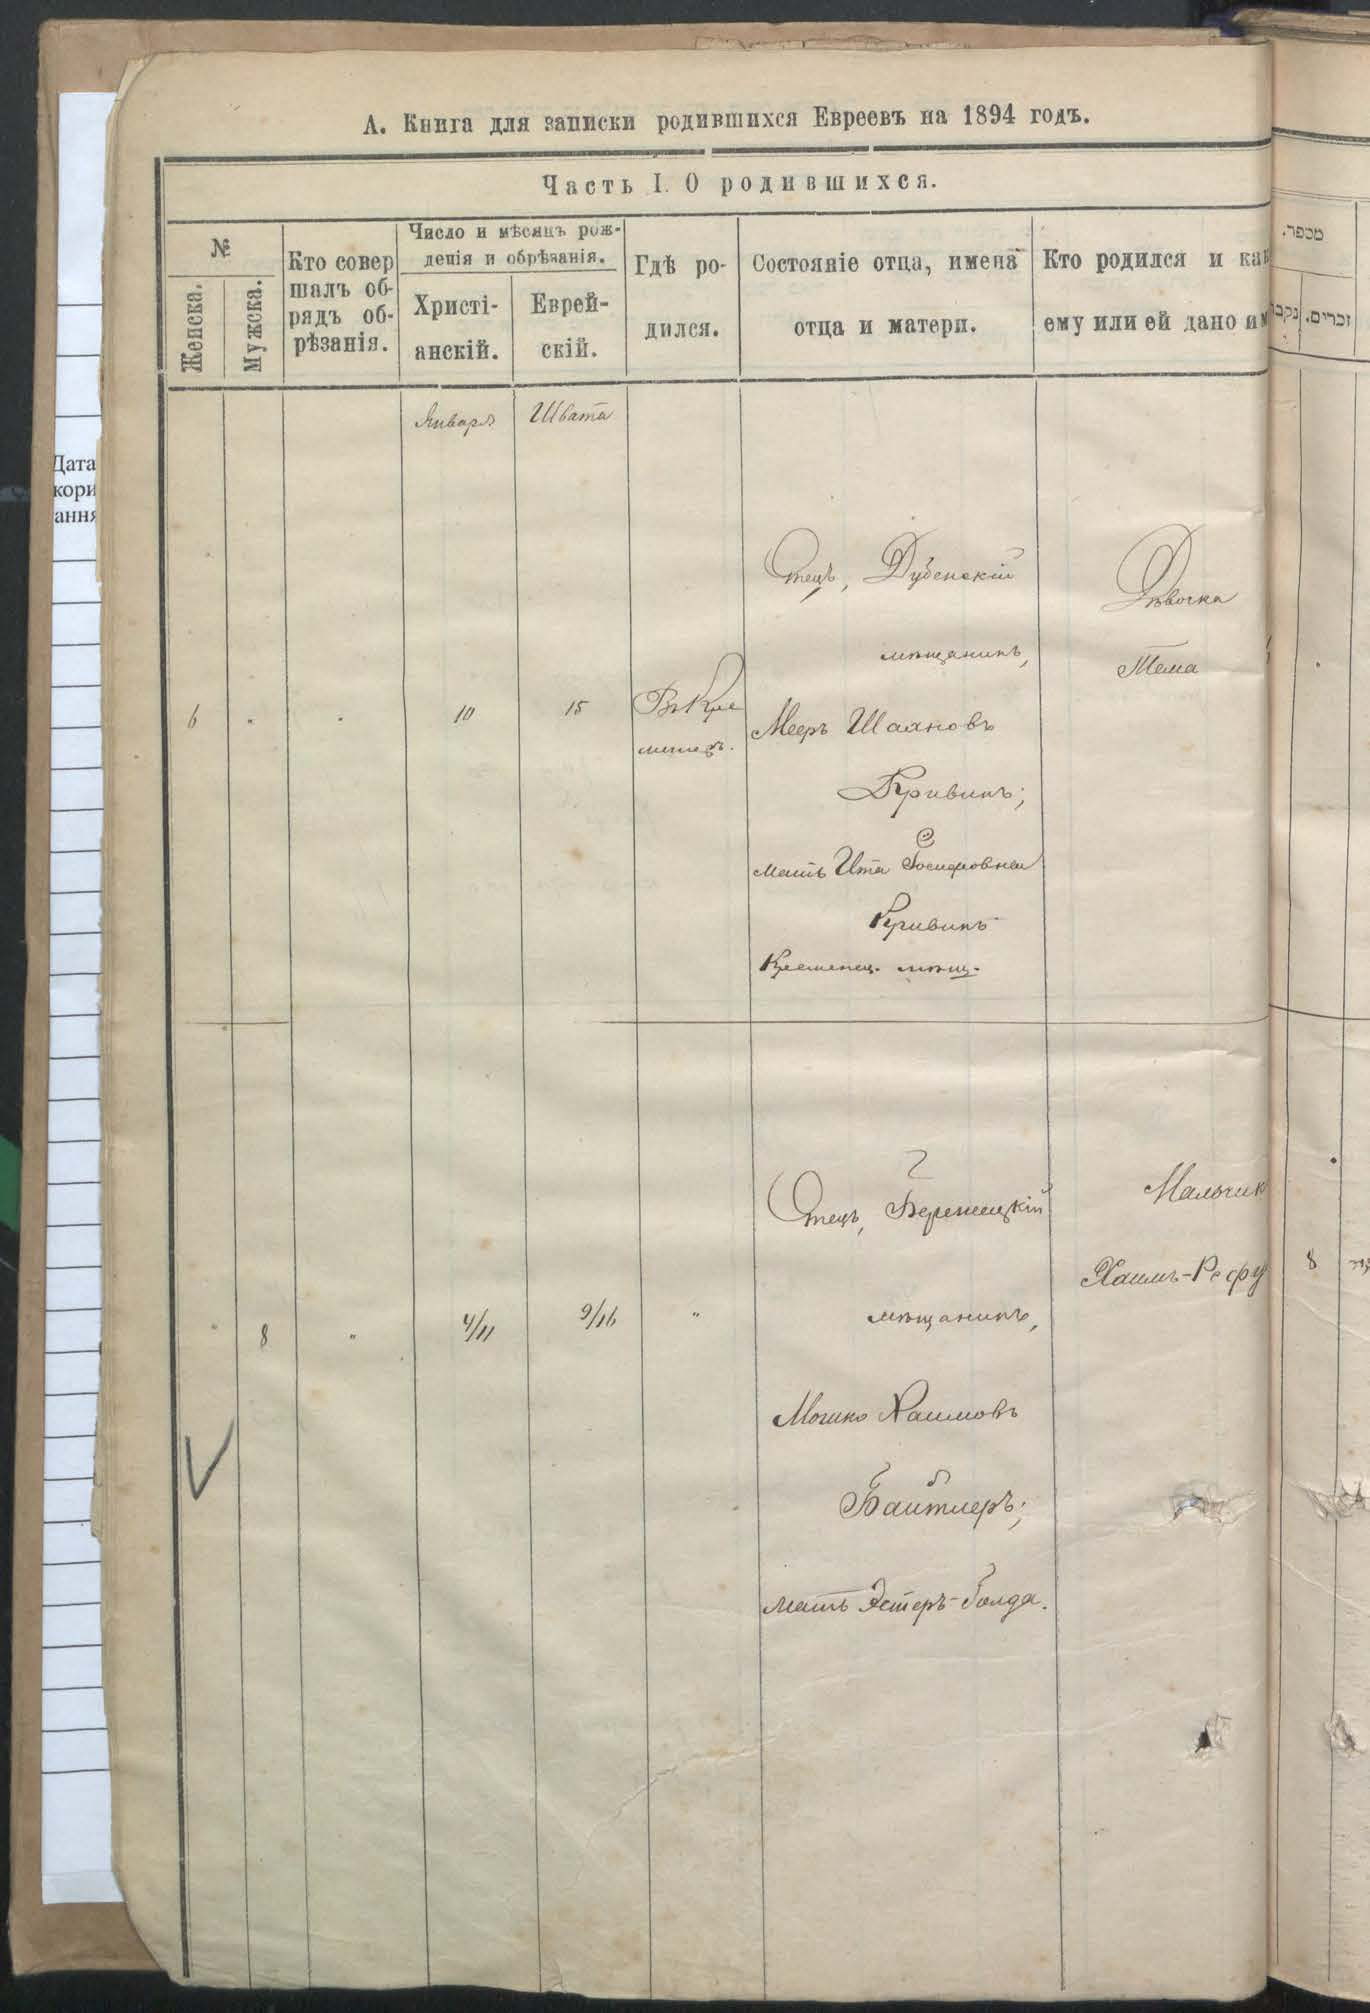 А. Книга для записки родившихся Евреевъ на 1894 годъ.
Часть I. О родившихся.
№
Женска.
Мужска.
Кто совер
шалъ об-
рядъ об-
рѣзанія.
Число и мѣсяцъ рож-
денія и обрѣзанія.
Христі-
анскій.
Еврей-
скій.
Гдѣ ро-
дился.
Состояніе отца, имена
отца и матери.
Кто родился и как
ему или ей дано им
מספר.
נקבו
זכרים.
Дата
кори
ання
Январь
Швата
6
"
"
10
15
Въ Кре
менец.
Отецъ, Дубенскій
мѣщанинъ,
Мееръ Шаяновъ
Кривинъ;
мать Ита Іосифовна
Кривинъ
Кременец. мѣщ.
Дѣвочка
Тема
"
8
"
4/11
9/16
"
Отецъ,
мѣщанинъ,
Мошко Хаимовъ
Байтлеръ;
мать Эстеръ-Голда.
Мальчик
Хаимъ-Рефу
8